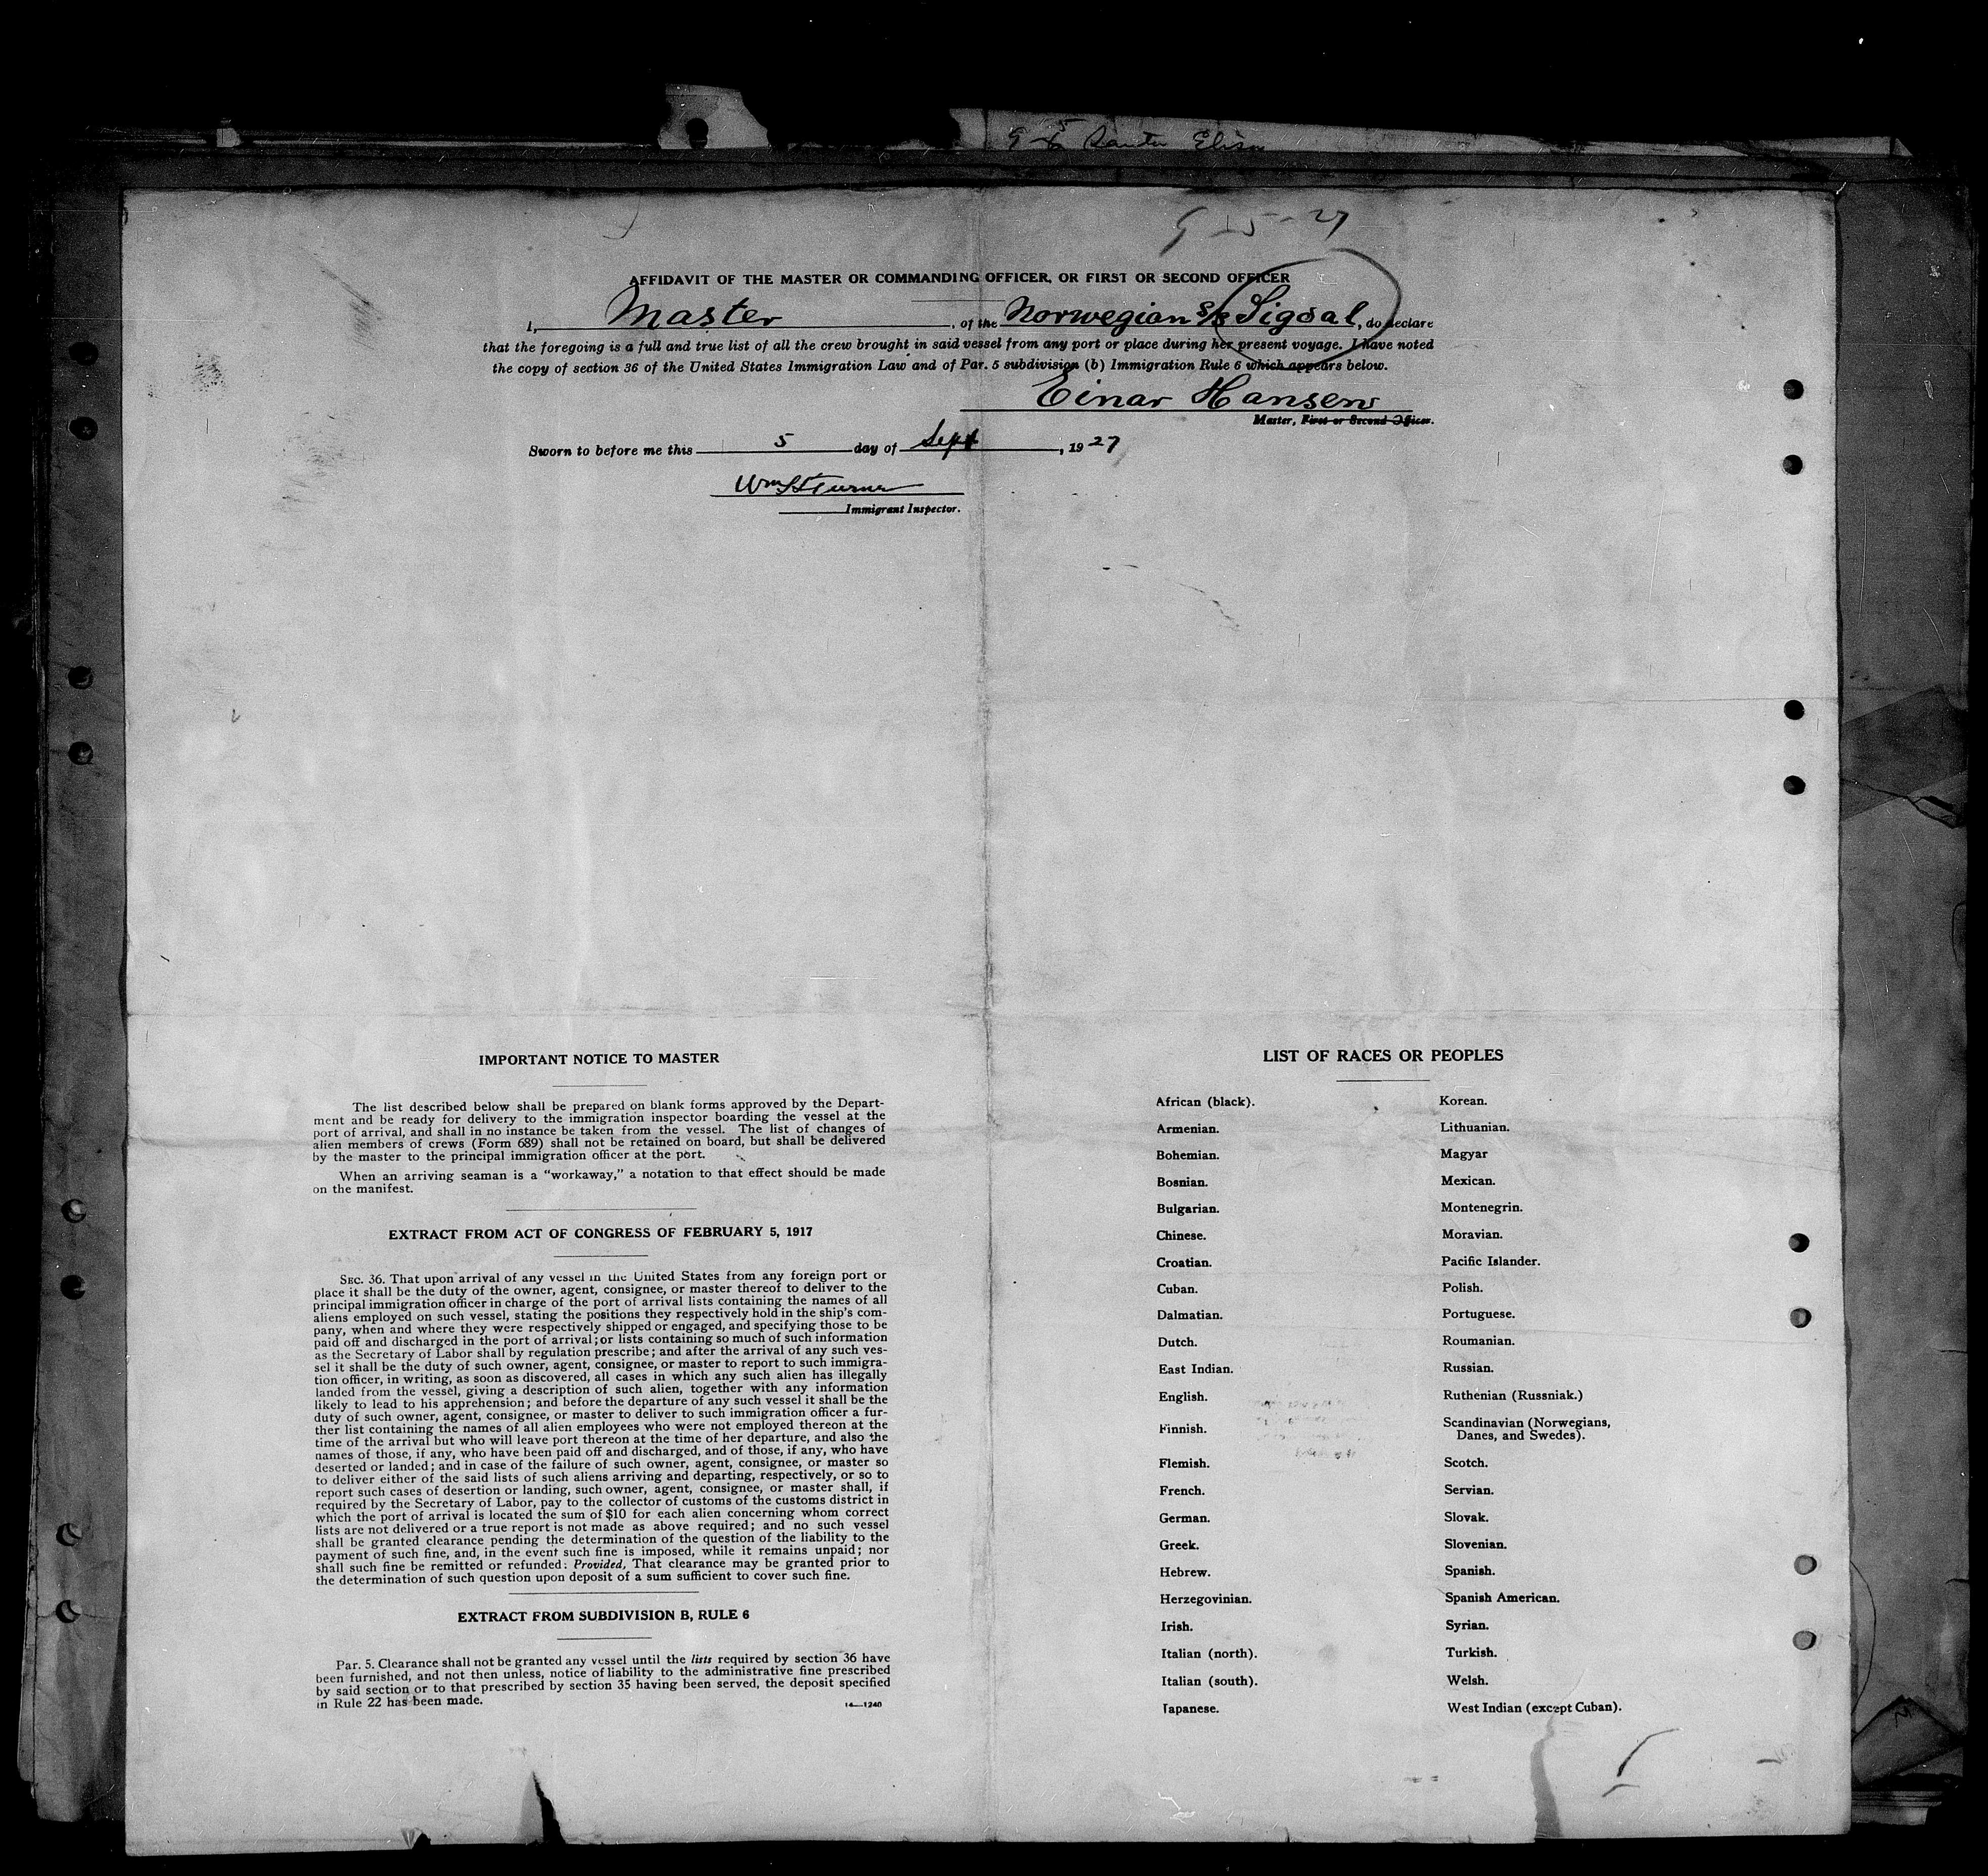 9-5 Santa Elisa
9-5-27
AFFIDAVIT OF THE MASTER OR COMMANDING OFFICER, OR FIRST OR SECOND OFFICER
I, Master, of the Norwegian S/S Sigdal, do declare
that the foregoing is a full and true list of all the crew brought in said vessel from any port or place during her present voyage. I have noted
the copy of section 36 of the United States Immigration Law and of Par. 5 subdivision (b) Immigration Rule 6 which appears below.
Einar Hansen
Master, First or Second Officer.
Sworn to before me this 5 day of Sept, 1927
Wm S Turner
Immigrant Inspector.
IMPORTANT NOTICE TO MASTER
The list described below shall be prepared on blank forms approved by the Depart-
ment and be ready for delivery to the immigration inspector boarding the vessel at the
port of arrival, and shall in no instance be taken from the vessel. The list of changes of
alien members of crews (Form 689) shall not be retained on board, but shall be delivered
by the master to the principal immigration officer at the port.
When an arriving seaman is a “workaway,” a notation to that effect should be made
on the manifest.
EXTRACT FROM ACT OF CONGRESS OF FEBRUARY 5, 1917
SEC. 36. That upon arrival of any vessel in the United States from any foreign port or
place it shall be the duty of the owner, agent, consignee, or master thereof to deliver to the
principal immigration officer in charge of the port of arrival lists containing the names of all
aliens employed on such vessel, stating the positions they respectively hold in the ship's com-
pany, when and where they were respectively shipped or engaged, and specifying those to be
paid off and discharged in the port of arrival; or lists containing so much of such information
as the Secretary of Labor shall by regulation prescribe; and after the arrival of any such ves-
sel it shall be the duty of such owner, agent, consignee, or master to report to such immigra-
tion officer, in writing, as soon as discovered, all cases in which any such alien has illegally
landed from the vessel, giving a description of such alien, together with any information
likely to lead to his apprehension; and before the departure of any such vessel it shall be the
duty of such owner, agent, consignee, or master to deliver to such immigration officer a fur-
ther list containing the names of all alien employees who were not employed thereon at the
time of the arrival but who will leave port thereon at the time of her departure, and also the
names of those, if any, who have been paid off and discharged, and of those, if any, who have
deserted or landed; and in case of the failure of such owner, agent, consignee, or master so
to deliver either of the said lists of such aliens arriving and departing, respectively, or so to
report such cases of desertion or landing, such owner, agent, consignee, or master shall, if
required by the Secretary of Labor, pay to the collector of customs of the customs district in
which the port of arrival is located the sum of $10 for each alien concerning whom correct
lists are not delivered or a true report is not made as above required; and no such vessel
shall be granted clearance pending the determination of the question of the liability to the
payment of such fine, and, in the event such fine is imposed, while it remains unpaid; nor
shall such fine be remitted or refunded: Provided, That clearance may be granted prior to
the determination of such question upon deposit of a sum sufficient to cover such fine.
EXTRACT FROM SUBDIVISION B, RULE 6
Par. 5. Clearance shall not be granted any vessel until the lists required by section 36 have
been furnished, and not then unless, notice of liability to the administrative fine prescribed
by said section or to that prescribed by section 35 having been served, the deposit specified
in Rule 22 has been made.
14—1240
LIST OF RACES OR PEOPLES
African (black).
Armenian.
Bohemian.
Bosnian.
Bulgarian.
Chinese.
Croatian.
Cuban.
Dalmatian.
Dutch.
East Indian.
English.
Finnish.
Flemish.
French.
German.
Greek.
Hebrew.
Herzegovinian.
Irish.
Italian (north).
Italian (south).
Japanese.
Korean.
Lithuanian.
Magyar
Mexican.
Montenegrin.
Moravian.
Pacific Islander.
Polish.
Portuguese.
Roumanian.
Russian.
Ruthenian (Russniak.)
Scandinavian (Norwegians,
Danes, and Swedes).
Scotch.
Servian.
Slovak.
Slovenian.
Spanish.
Spanish American.
Syrian.
Turkish.
Welsh.
West Indian (except Cuban).